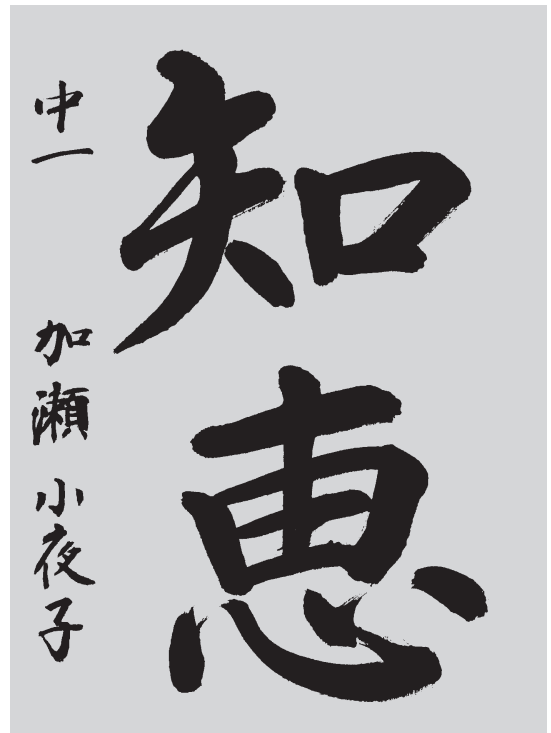 知恵
中一 加瀬 小夜子